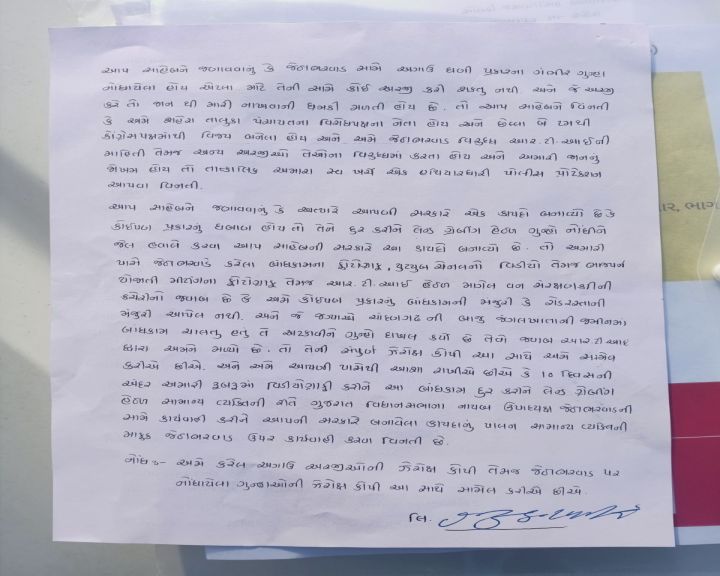 આપ સાહેબને જણાવવાનું કે જેઠાભરવાડ સામે અગાઉ ઘણી પ્રકારના ગંભીર ગુન્હા
નોંધાયેલા હોય એટલા માટે તેની સામે કોઈ અરજી કરી શકતુ નથી. અને જે અરજી
કરે તો જાન થી મારી નાખવાની ધમકી મળતી હોય છે. તો આપ સાહેબને વિનતી
કે અમે શહેરા તાલુકા પંચાયતના વિરોધપક્ષના નેતા હોય અને છેલ્લા બે ટમથી
કોંગ્રેસપક્ષમાંથી વિજય બનેલા હોય અને અમે જેઠાભરવાડ વિરુધ્ધ આર.ટી.આઈની
માહિતી તેમજ અન્ય અરજીઓ તેઓના વિરુધ્ધમાં કરતા હોય અને અમારી જાનનું
જોખમ હોય તો તાત્કાલિક અમારા સ્વ ખર્ચે એક હથિયારધારી પોલીસ પ્રોટેકશન
આપવા વિનતી.
આપ સાહેબને જણાવવાનું કે અત્યારે આપણી સરકારે એક કાયદો બનાવ્યો છે કે
કોઈપણ પ્રકારનું દબાણ હોય તો તેને દુર કરીને લેન્ડ ગ્રેબીંગ હેઠળ ગુન્હો નોંધીને
જેલ હવાલે કરવા આપ સાહેબની સરકારે આ કાયદો બનાવ્યો છે. તો અમારી
પાસે જેઠાભરવાડે કરેલા બાંધકામના ફોટોગ્રાફ, યુટયુબ ચેનલનો વિડીયો તેમજ ભાજપન
યોજાતી મીટીંગના ફોટોગ્રાફ તેમજ આર.ટી.આઈ હેઠળ માગેલ વન સંરક્ષણશ્રીની
કચેરીનો જવાબ છે કે અમે કોઈપણ પ્રકારનું બાંધકામની મંજુરી કે રોડરસ્તાની
મંજુરી આપેલ નથી. અને જે જગ્યાએ ચાંદણગઢની બાજુ જંગલખાતાની જમીનમાં
બાંધકામ ચાલતુ હતું તે અટકાવીને ગુન્હો દાખલ કર્યો છે તેવો જવાબ આર.ટી.આઈ
દ્વારા અમને મળ્યો છે. તો તેની સંપુર્ણ ઝેરોક્ષ કોપી આ સાથે અમે સામેલ
કરીએ છીએ. અને અમે આપની પાસેથી આશા રાખીએ છીએ કે 10 દિવસની
અંદર અમારી રૂબરૂમાં વિડીયોગ્રાફી કરીને આ બાંધકામ દુર કરીને લેન્ડ ગ્રેબીંગ
હેઠળ સામાન્ય વ્યક્તિની રીતે ગુજરાત વિધાનસભાના નાયબ ઉપાધ્યક્ષ જેઠાભરવાડની
સામે કાર્યવાહી કરીને આપની સરકારે બનાવેલા કાયદાનું પાલન સામાન્ય વ્યક્તિની
માફક જેઠાભરવાડ ઉપર કાર્યવાહી કરવા વિનતી છે.
નોંધ :- અમે કરેલ અગાઉ અરજીઓની ઝેરોક્ષ કોપી તેમજ જેઠાભરવાડ પર
નોંધાયેલા ગુન્હાઓની ઝેરોક્ષ કોપી આ સાથે સામેલ કરીએ છીએ.
લિ.
ાર, ભાગ